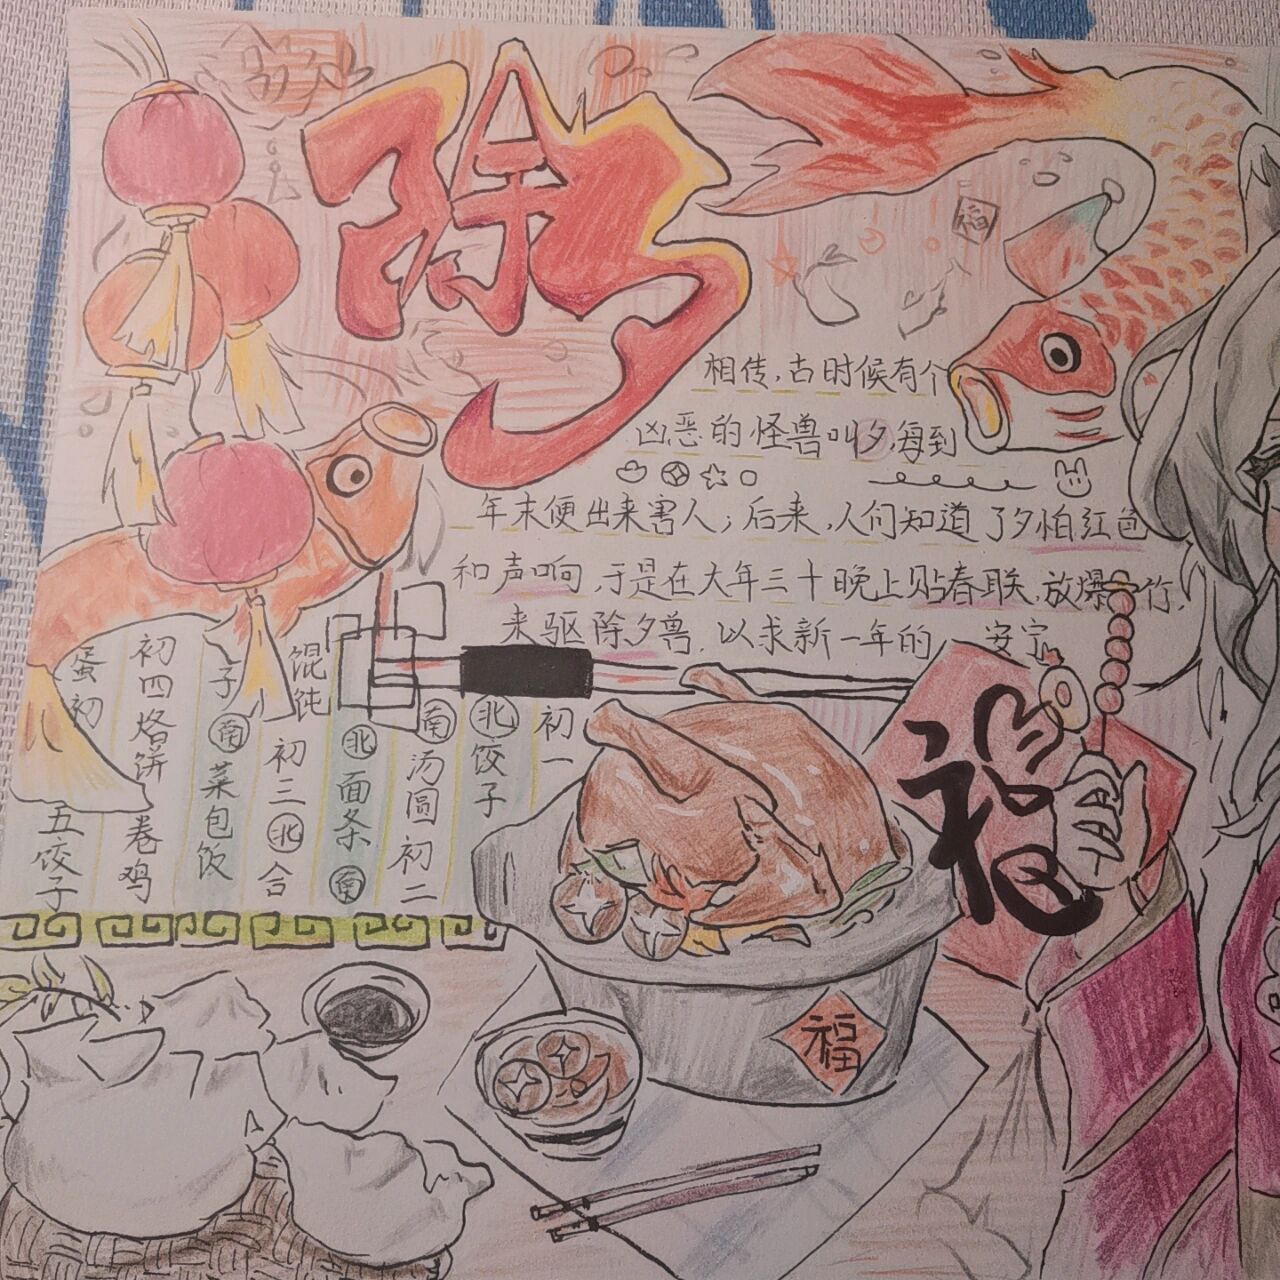 除夕
福
相传,古时候有个
凶恶的怪兽叫夕,每到
年末便出来害人;后来,人们知道了夕怕红色
和声响,于是在大年三十晚上贴春联、放爆竹,
来驱除夕兽,以求新一年的 安宁
初一
北饺子
南汤圆初二
北面条南
馄饨初三北合
子南菜包饭
初四烙饼卷鸡
蛋初五饺子
福
福